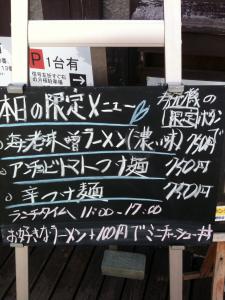 P 1台有
本日の限定メニュー
券売機の
限定ボタン
海老味噌ラーメン(濃い味) 750円
アンチョビトマトつけ麺 750円
辛つけ麺 750円
ランチタイム 11:00〜17:00
お好きなラーメン+100円でミニチャーシュー丼